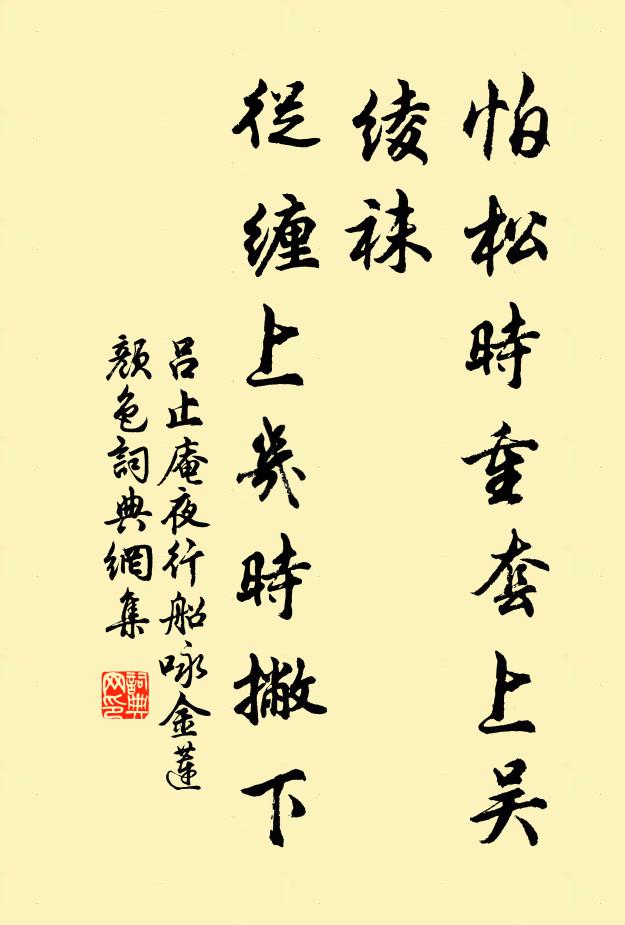 怕松時重套上吴
綾袜
從纏上幾時撇下
呂止庵夜行船咏金蓮
顏色詞典網集
詞典
网印